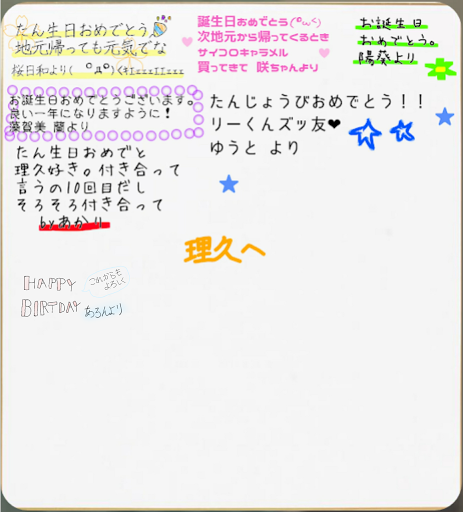 たん生日おめでとう
地元帰っても元気でな
桜日和より( ºДº)くｷIｴｴｴIIｴｴｴ
誕生日おめでとう(°ω<)
次地元から帰ってくるとき
サイコロキャラメル
買ってきて 咲ちゃんより
お誕生日
おめでとう。
陽葵より
お誕生日おめでとうございます。
良い一年になりますように！
葵賀美 蘭より
たんじょうびおめでとう！！
リーくんズッ友❤
ゆうと より
たん生日おめでと
理久好き。付き合って
言うの10回目だし
そろそろ付き合って
byあかり
理久へ
HAPPY
BIRTDAY
これからも
よろしく
あろんより